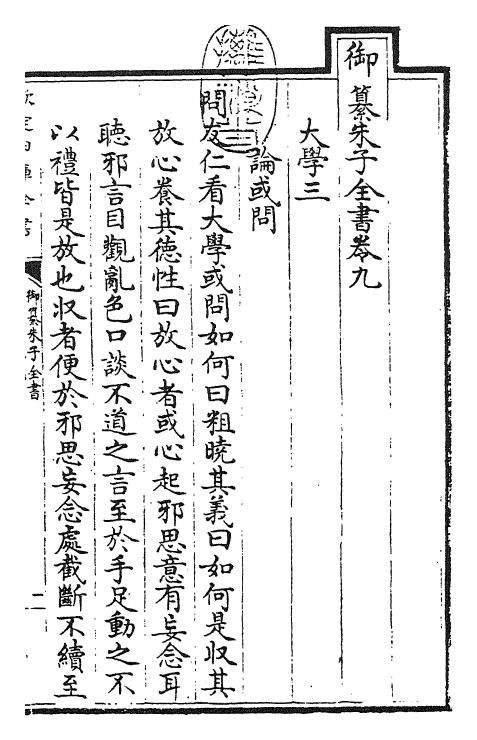 御纂朱子全書卷九
大學三
論或問
問友仁看大學或問如何曰粗曉其義曰如何是収其
放心養其徳性曰放心者或心起邪思意有妄念耳
聽邪言目觀亂色口談不道之言至於手足動之不
以禮皆是放也収者便於邪思妄念處截斷不續至
御纂朱子全書